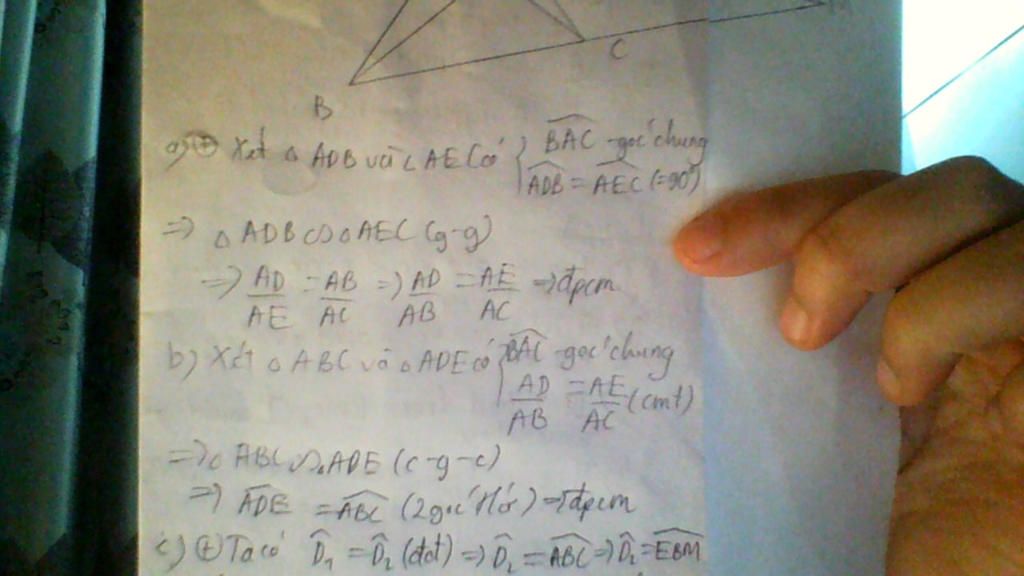 C
B
a) (+) Xét △ ADB và △ AEC có { BAC - góc chung
ADB = AEC (= 90°)
=> △ ADB ∽ △ AEC (g-g)
=> AD/AE = AB/AC => AD/AB = AE/AC => đpcm
b) Xét △ ABC và △ ADE có { BAC - góc chung
AD/AB = AE/AC (cmt)
=> △ ABC ∽ △ ADE (c-g-c)
=> ADE = ABC (2 góc t/ứ) => đpcm
c) (+) Ta có D̂₁ = D̂₂ (đđ) => D̂₂ = ABC => D̂₂ = EBM